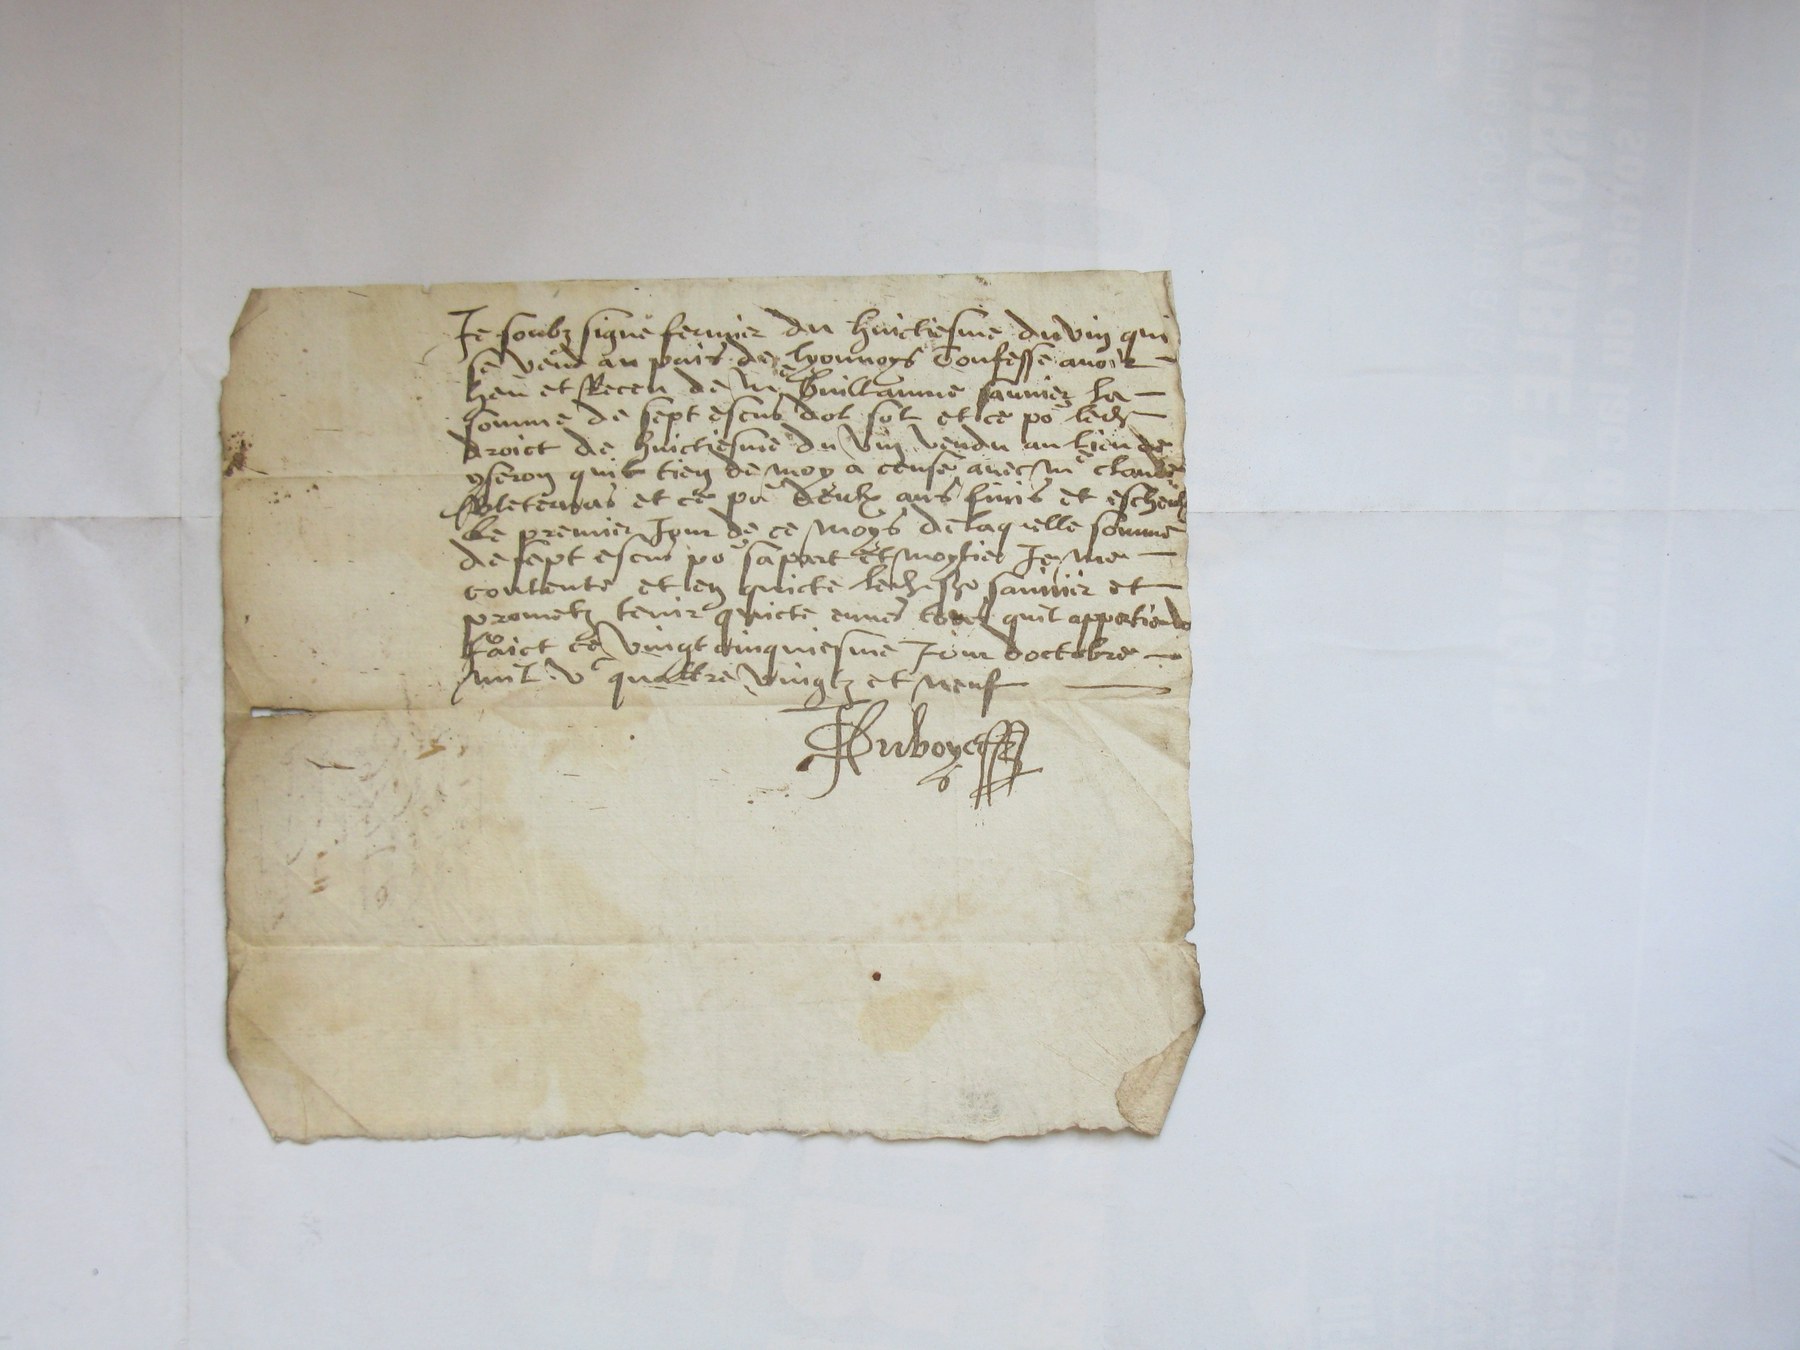 Je soubz signé fermier du huictiesme du vin qui
se vend au pais de lyonnoys Confesse avoir
heu et Receu de Me Guillaume saunier la
somme de sept escus dor sol et ce po led
droict de huictiesme du vin vendu au lieu de
yseron quil tien de moy a cense avec Me claude
et ce po deulx ans finis et escheuz
le premier Jour de ce moys de laquelle somme
de sept escus po sa part et moytie Je me
contente et en quicte led saunier et
prometz tenir quicte envers tous quil appartiendra
faict ce vingt cinquiesme Jour doctobre
mil vc quattre vingtz et neuf
Duboys